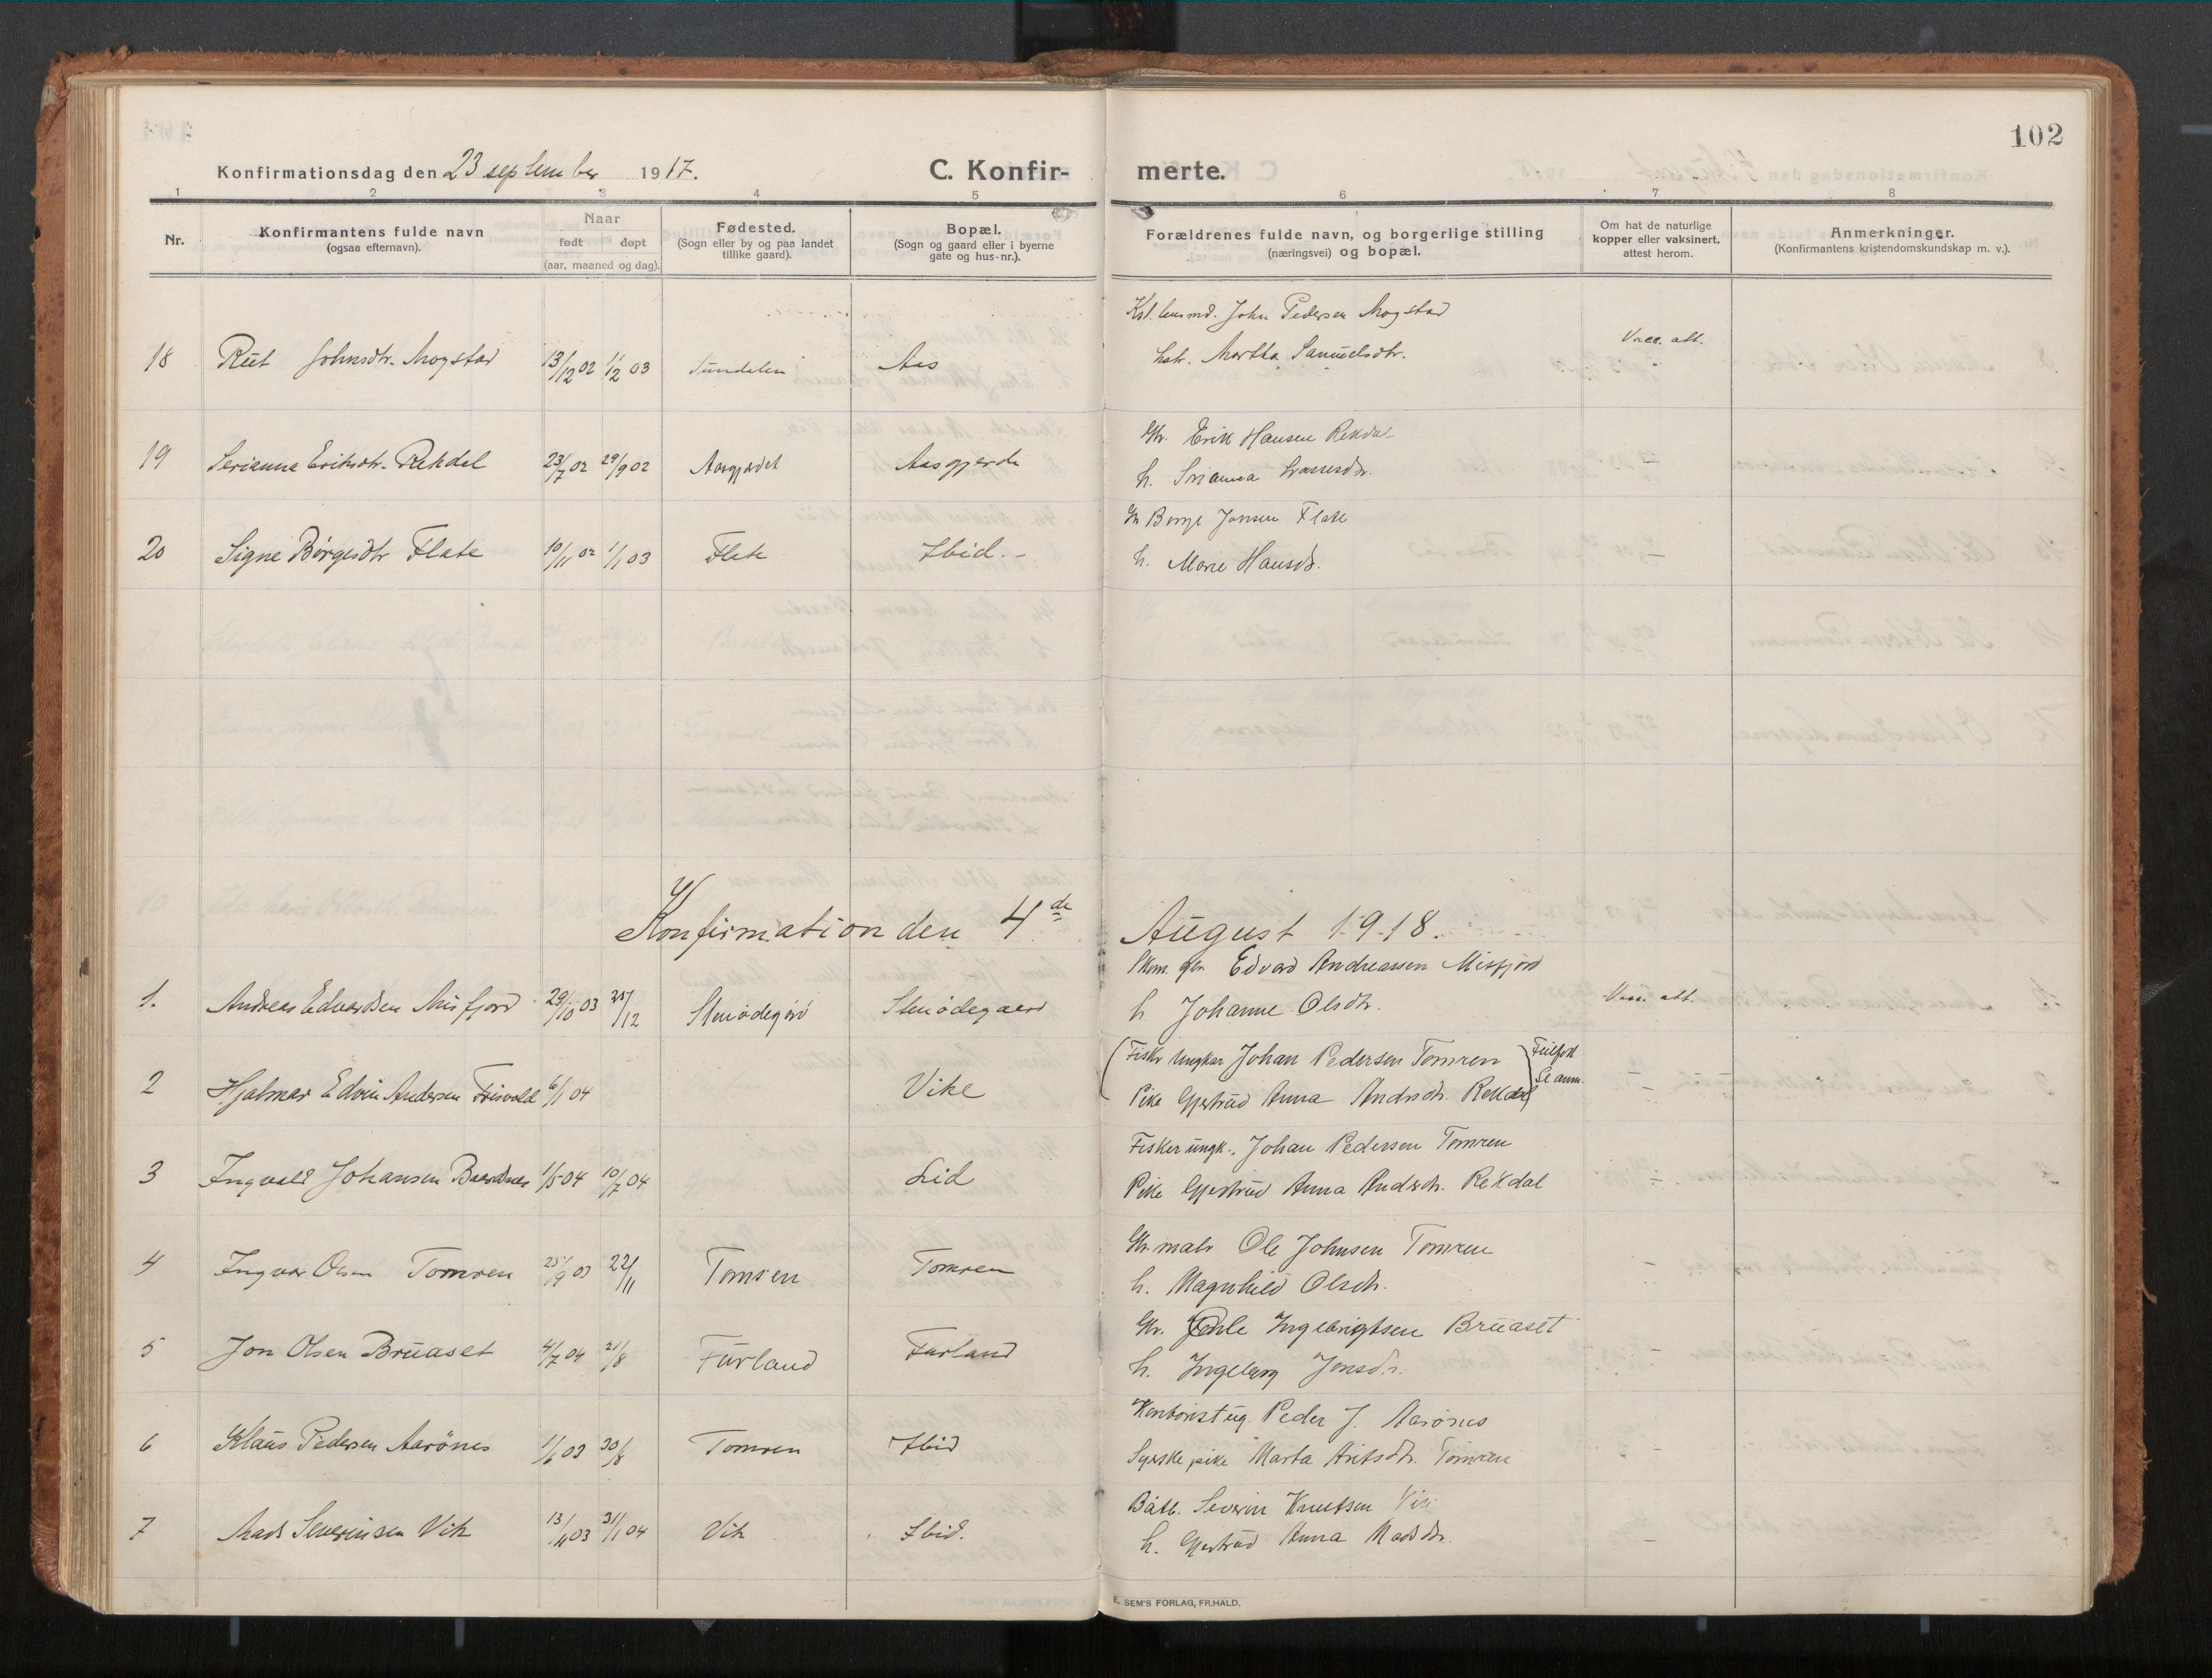 102
Konfirmationsdag den 23 september 1917. C. Konfirmerte.
1 2 3 4 5 6 7 8
Nr.
Konfirmantens fulde navn
(ogsaa efternavn).
Naar
født døpt
(aar, maaned og dag).
Fødested.
(Sogn eller by og paa landet
tillike gaard).
Bopæl.
(Sogn og gaard eller i byerne
gate og hus-nr.).
Forældrenes fulde navn, og borgerlige stilling
(næringsvei) og bopæl.
Om hat de naturlige
kopper eller vaksinert,
attest herom.
Anmerkninger.
(Konfirmantens kristendomskundskap m. v.).
John Pedersen Mogstad
18 Rut Johnsdtr. Mogstad 13/12 02 1/2 03 Sundalen Aas Martha Samuelsdtr. Vacc. att.
Gbr. Erik Hansen Rekdal
19 Serianna Eriksdtr. Rekdal 23/7 02 29/9 02 Aasgjerdet Aasgjerde h. Srianna -
Børge Jonsen Flate
20 Signe Børgesdtr Flate 10/11 02 1/1 03 Flate Ibid. - h. Marie Hansdr. -
Konfirmation den 4de August 1918.
Edvard Andreassen Misfjord
1. Andreas Edvardsen Misfjord 29/10 03 25/12 Stenødegård Stenødegaard h. Johanne Olsdtr. Vacc. att.
Fisker ungkar Johan Pedersen Tomren Feilført
2 Hjalmar Edvin Andersen Frisvold 6/1 04 Vike Pike Gjertrud Anna Andrsdtr. Rekdal Se anm. -
Fisker ungk. Johan Pedersen Tomren
3 Ingvald Johansen 1/5 04 10/7 04 Lid Pike Gjertrud Anna Andrsdtr. Rekdal -
Gbr. maler Ole Johnsen Tomren
4 Ingvar Olsen Tomren 25/9 03 22/11 Tomren Tomren h. Magnhild Olsdtr. -
Gbr. Ole Ingebrigtsen Bruaset
5 Jon Olsen Bruaset 4/7 04 21/8 Furland Furland h. Ingeborg Jonsdtr. -
Kontorist ug. Peder J. Aarønes
6 Klaus Pedersen Aarønes 1/6 03 30/8 Tomren Ibid Syerske pike Marta Tomren -
Båtb. Severin Knutsen Vik
7 Mads Severinsen Vik 13/11 03 31/1 04 Vik Ibid. h. Gjertrud Anna Madsdtr. -
E. SEM'S FORLAG, FR.HALD.